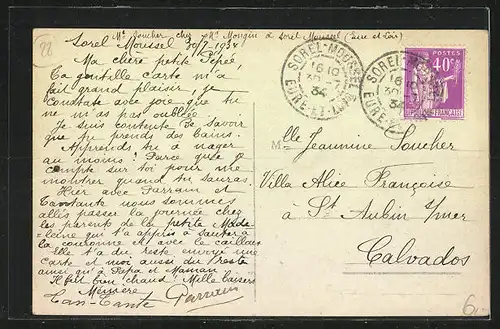 22
Mr Soucher chez Mr Mongin à Sorel Moussel (Eure et Loir)
Sorel Moussel 30/7 1934
Ma chère petite Pépée,
Ta gentille carte m'a
fait grand plaisir, je
constate avec joie que tu
ne m'as pas oubliée.
Je suis contente de savoir
que tu prends des bains.
Apprends tu à nager
au moins? Parce que je
compte sur toi pour me
montrer quand tu sauras.
Hier avec Parrain et
Tantante nous sommes
allés passer la journée chez
les parents de la petite Made-
leine qui t'a appris à sauter à
la couronne et avec le caillou
Elle t'a du reste envoyé une
carte et moi aussi du reste
ainsi qu'à Papa et Maman
Il fait bien chaud! Mille baisers
Mémère
Tan-Tante Parrain
SOREL-MOUSSEL
16 10
30
34
EURE-ET-LOIR
SOREL-MOUSSEL
16 10
30
34
EURE-ET-LOIR
POSTES
40c
RÉPUBLIQUE FRANÇAISE
Mlle Jeannine Soucher
Villa Alice Françoise
à St Aubin s/mer
Calvados
6.